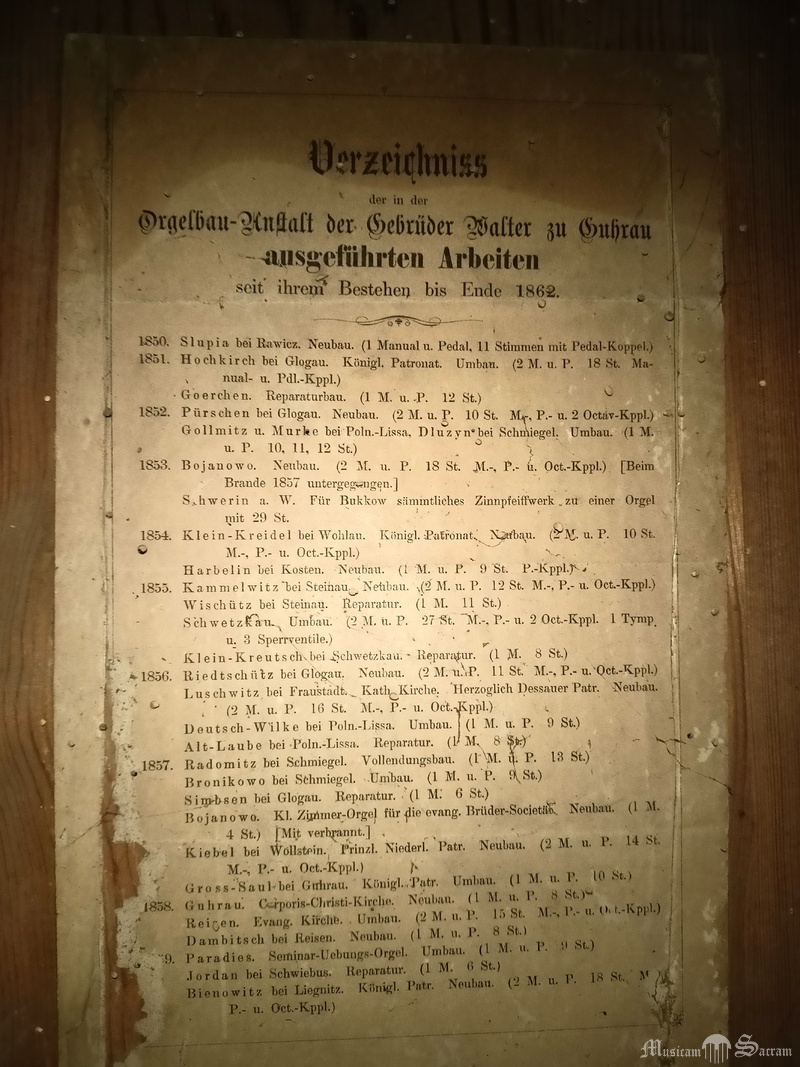 Verzeichniss
der in der
Orgelbau-Anstalt der Gebrüder Walter zu Guhrau
ausgeführten Arbeiten
seit ihrem Bestehen bis Ende 1862.
1850. Slupia bei Rawicz. Neubau. (1 Manual u. Pedal, 11 Stimmen mit Pedal-Koppel.)
1851. Hochkirch bei Glogau. Königl. Patronat. Umbau. (2 M. u. P. 18 St. Ma-
nual- u. Pdl.-Kppl.)
Goerchen. Reparaturbau. (1 M. u. P. 12 St.)
1852. Pürschen bei Glogau. Neubau. (2 M. u. P. 10 St. M., P.- u. 2 Octav-Kppl.)
Gollmitz u. Murke bei Poln.-Lissa, Dluzyn bei Schmiegel. Umbau. (1 M.
u. P. 10, 11, 12 St.)
1853. Bojanowo. Neubau. (2 M. u. P. 18 St. M.-, P.- u. Oct.-Kppl.) [Beim
Brande 1857 untergegangen.]
Schwerin a. W. Für Bukkow sämmtliches Zinnpfeiffwerk zu einer Orgel
mit 29 St.
1854. Klein-Kreidel bei Wohlau. Königl. Patronat. Neubau. (2 M. u. P. 10 St.
M.-, P.- u. Oct.-Kppl.)
Harbelin bei Kosten. Neubau. (1 M. u. P. 9 St. P.-Kppl.)
1855. Kammelwitz bei Steinau. Neubau. (2 M. u. P. 12 St. M.-, P.- u. Oct.-Kppl.)
Wischütz bei Steinau. Reparatur. (1 M. 11 St.)
Schwetzkau. Umbau. (2 M. u. P. 27 St. M.-, P.- u. 2 Oct.-Kppl. 1 Tymp.
u. 3 Sperrventile.)
Klein-Kreutsch bei Schwetzkau. Reparatur. (1 M. 8 St.)
1856. Riedtschütz bei Glogau. Neubau. (2 M. u. P. 11 St. M.-, P.- u. Oct.-Kppl.)
Luschwitz bei Fraustadt. Kath. Kirche. Herzoglich Dessauer Patr. Neubau.
(2 M. u. P. 16 St. M.-, P.- u. Oct.-Kppl.)
Deutsch-Wilke bei Poln.-Lissa. Umbau. (1 M. u. P. 9 St.)
Alt-Laube bei Poln.-Lissa. Reparatur. (1 M. 8 St.)
1857. Radomitz bei Schmiegel. Vollendungsbau. (1 M. u. P. 13 St.)
Bronikowo bei Schmiegel. Umbau. (1 M. u. P. 9 St.)
Simbsen bei Glogau. Reparatur. (1 M. 6 St.)
Bojanowo. Kl. Zimmer-Orgel für die evang. Brüder-Societät. Neubau. (1 M.
4 St.) [Mit verbrannt.]
Kiebel bei Wollstein. Prinzl. Niederl. Patr. Neubau. (2 M. u. P. 14 St.
M.-, P.- u. Oct.-Kppl.)
Gross-Saul bei Guhrau. Königl. Patr. Umbau. (1 M. u. P. 10 St.)
1858. Guhrau. Corporis-Christi-Kirche. Neubau. (1 M. u. P. 8 St.)
Reisen. Evang. Kirche. Umbau. (2 M. u. P. 15 St. M.-, P.- u. Oct.-Kppl.)
Dambitsch bei Reisen. Neubau. (1 M. u. P. 8 St.)
9. Paradies. Seminar-Uebungs-Orgel. Umbau. (1 M. u. P. 9 St.)
Jordan bei Schwiebus. Reparatur. (1 M. 6 St.)
Bienowitz bei Liegnitz. Königl. Patr. Neubau. (2 M. u. P. 18 St. M
P.- u. Oct.-Kppl.)
Musicam Sacram